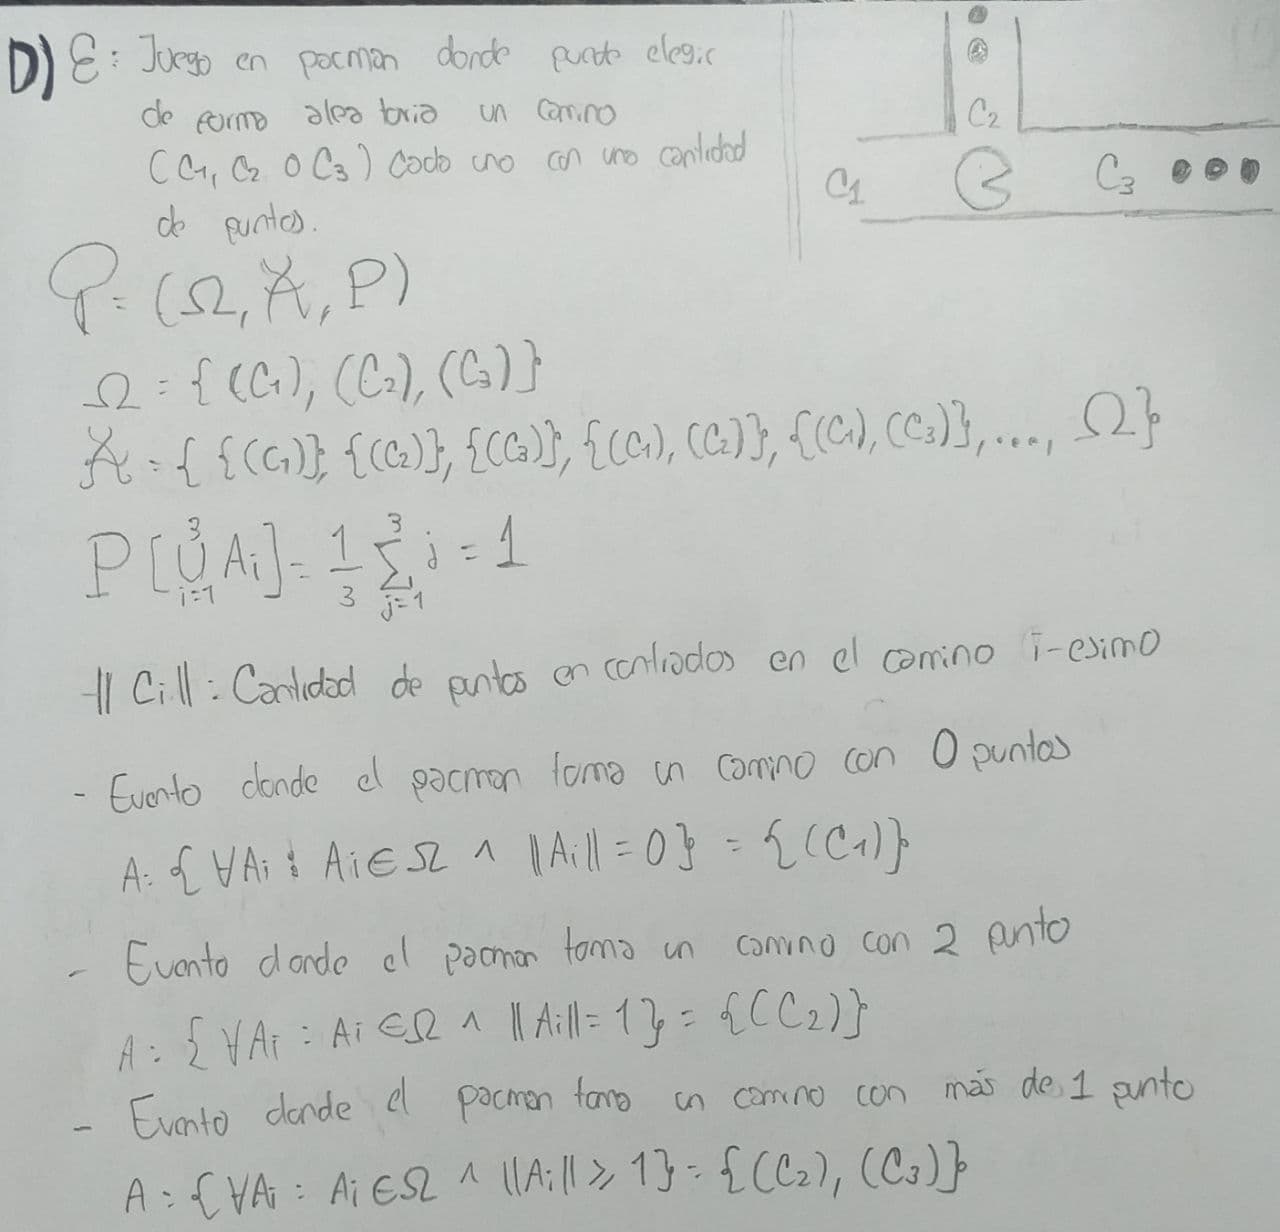 D) Ɛ: Juego en pacman donde puede elegir
de forma aleatoria un camino
(C1, C2 o C3) Cada uno con una cantidad
de puntos.
C2
C1
C3
P = (Ω, A, P)
Ω = { (C1), (C2), (C3) }
A = { {(C1)}, {(C2)}, {(C3)}, {(C1), (C2)}, {(C1), (C3)}, ..., Ω }
P [ ∪_{i=1}^{3} Ai ] = 1/3 Σ_{j=1}^{3} j = 1
|| Ci || : Cantidad de puntos encontrados en el camino i-esimo
- Evento donde el pacman toma un camino con 0 puntos
A: { ∀Ai : Ai ∈ Ω ∧ ||Ai|| = 0 } = { (C1) }
- Evento donde el pacman toma un camino con 2 punto
A: { ∀Ai : Ai ∈ Ω ∧ ||Ai|| = 1 } = { (C2) }
- Evento donde el pacman toma un camino con más de 1 punto
A: { ∀Ai : Ai ∈ Ω ∧ ||Ai|| ≥ 1 } = { (C2), (C3) }